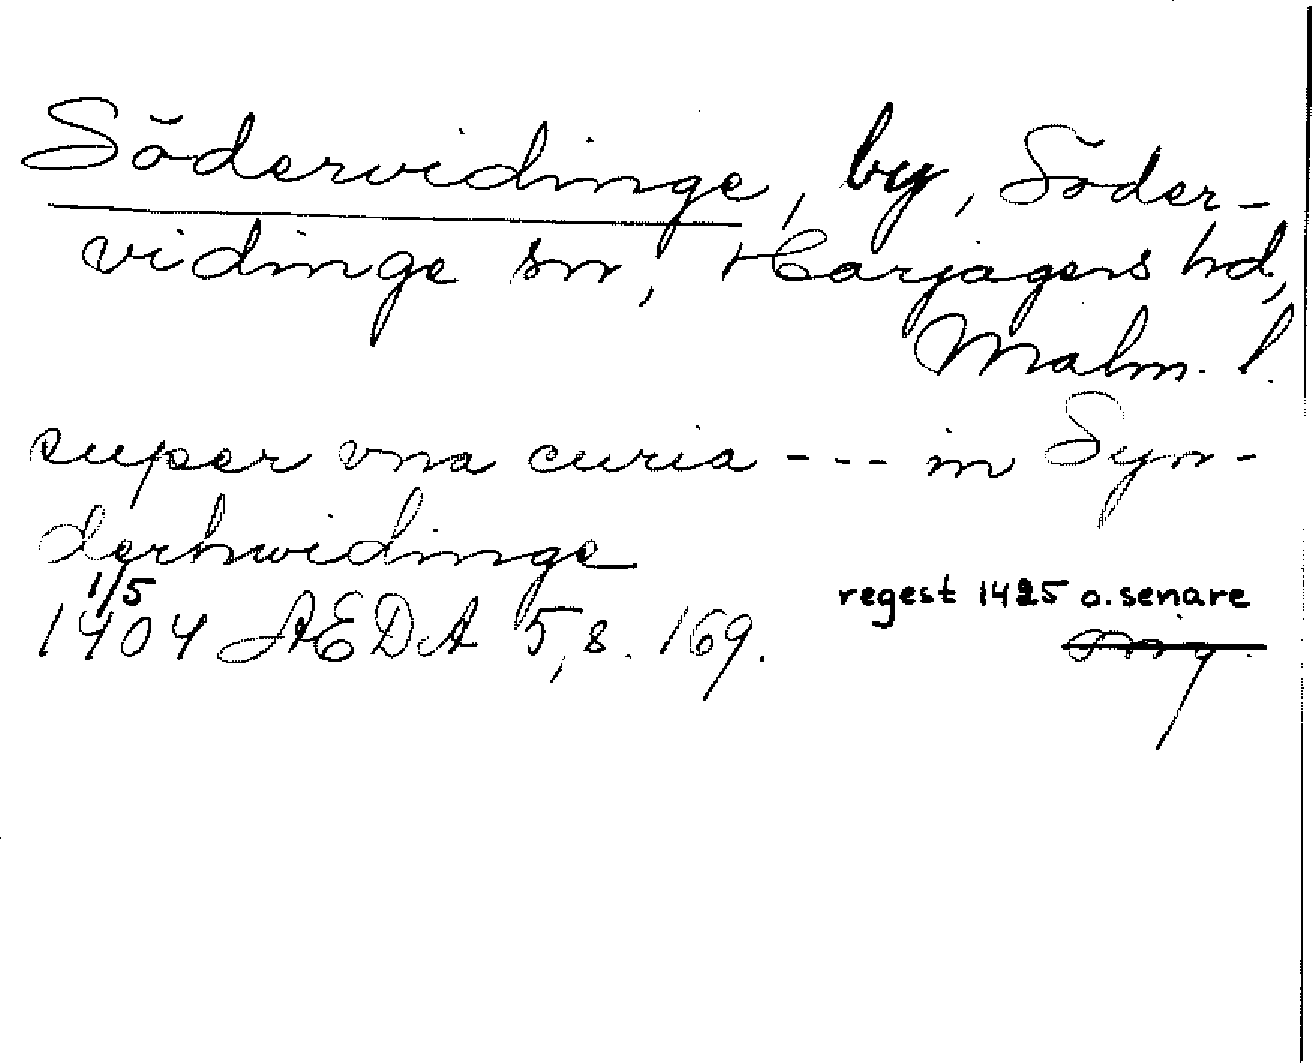 Södervidinge, by, Söder-
vidinge sn, Harjagers hd,
Malm. l.
super vna curia --- in Syn-
derhwidinge
1/5
1404 ÆDA 5, s. 169.
regest 1425 o. senare